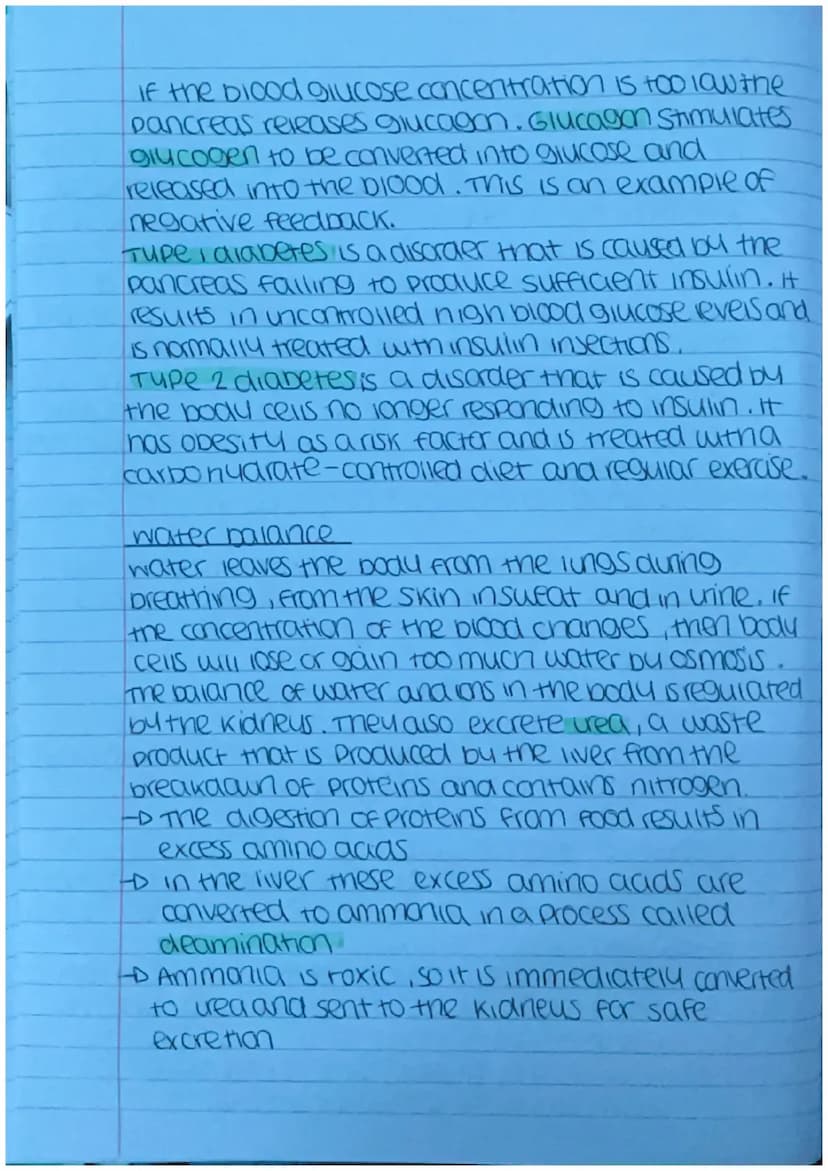 If the blood glucose concentration is too low the
pancreas releases glucagon. Glucagon stimulates
glucogen to be converted into glucose and
released into the blood. This is an example of
negative feedback.
Type 1 diabetes is a disorder that is caused by the
pancreas failing to produce sufficient insulin. It
results in uncontrolled high blood glucose levels and
is normally treated with insulin insections.
Type 2 diabetes is a disorder that is caused by
the body cells no longer responding to insulin. It
has obesity as a risk factor and is treated with a
carbohydrate-controlled diet and regular exercise.
Water balance
Water leaves the body from the lungs during
breathing, from the skin in sweat and in urine. If
the concentration of the blood changes, then body
cells will lose or gain too much water by osmosis.
The balance of water and ions in the body is regulated
by the kidneys. They also excrete urea, a waste
product that is produced by the liver from the
breakdown of proteins and contains nitrogen.
→ The digestion of proteins from food results in
excess amino acids
→ In the liver these excess amino acids are
converted to ammonia in a process called
deamination
→ Ammonia is toxic, so it is immediately converted
to urea and sent to the kidneys for safe
excretion